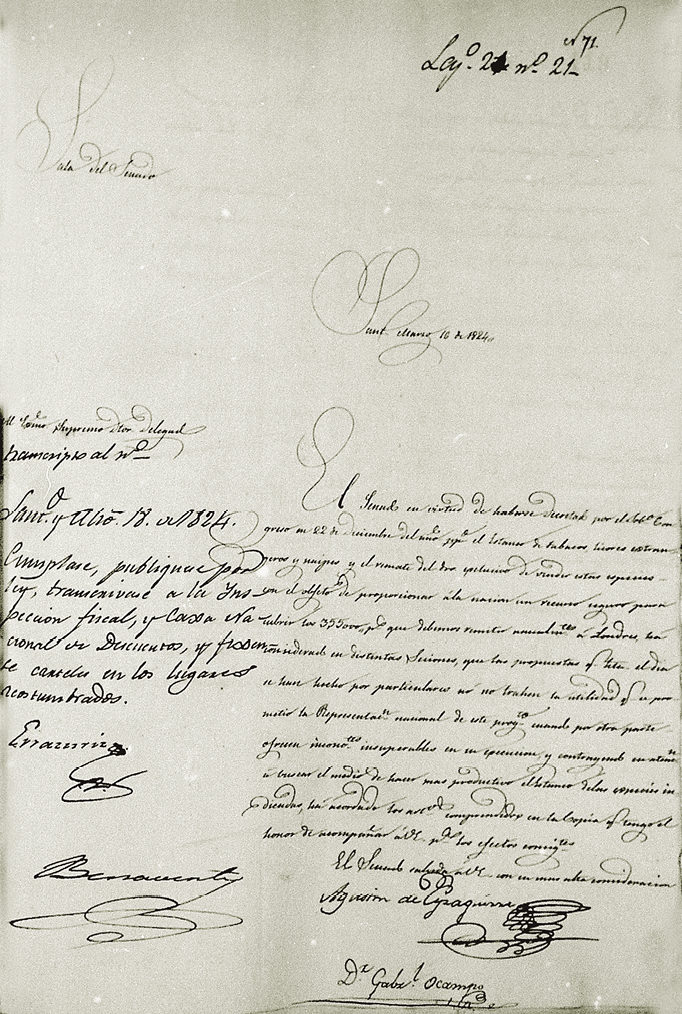 N 71.
Leg.o 21 n.o 21
Sala del Senado
Sant. Marzo 16 de 1824
Al Exmo Supremo Dtor Delegad
transcripto al n.o
Sant.o y Abo. 18. de 1824.
Cumplase, publiquese por
ley, transcrivase a la Ins
peccion fiscal, y Caxa Na
cional de Descuentos, y fixen
se carteles en los lugares
acostumbrados.
Errazuriz
Benavente
El Senado en virtud de haberse decretad por el Sob.o Con
greso en 22 de Diciembre del año pp.o el Estanco de tabacos, licores extran
geros y naipes y el remate del dro exclusivo de vender estas especies
con el objeto de proporcionar á la nacion un recurso seguro para
cubrir los 355000 p.s que debemos remitir anualm.te á Londres, ha
considerad en distintas Seciones, que las propuestas q.e hta el dia
se han hecho por particulares no trahen la utilidad q.e se pro
metió la Representac.n nacional de este proy.to cuando por otra parte
ofrecen incon.tes insuperables en su execucion y contrayend su aten.n
á buscar el medio de hacer mas productivo el Estanco de las especies in
dicadas, ha acordado los art.s comprendidos en la Copia q.e tengo el
honor de acompañar á VE p.a los efectos consig.tes
El Senado saluda á VE con su mas alta consideracion
Agustin de Eyzaguirre
D.r Gab.l Ocampo